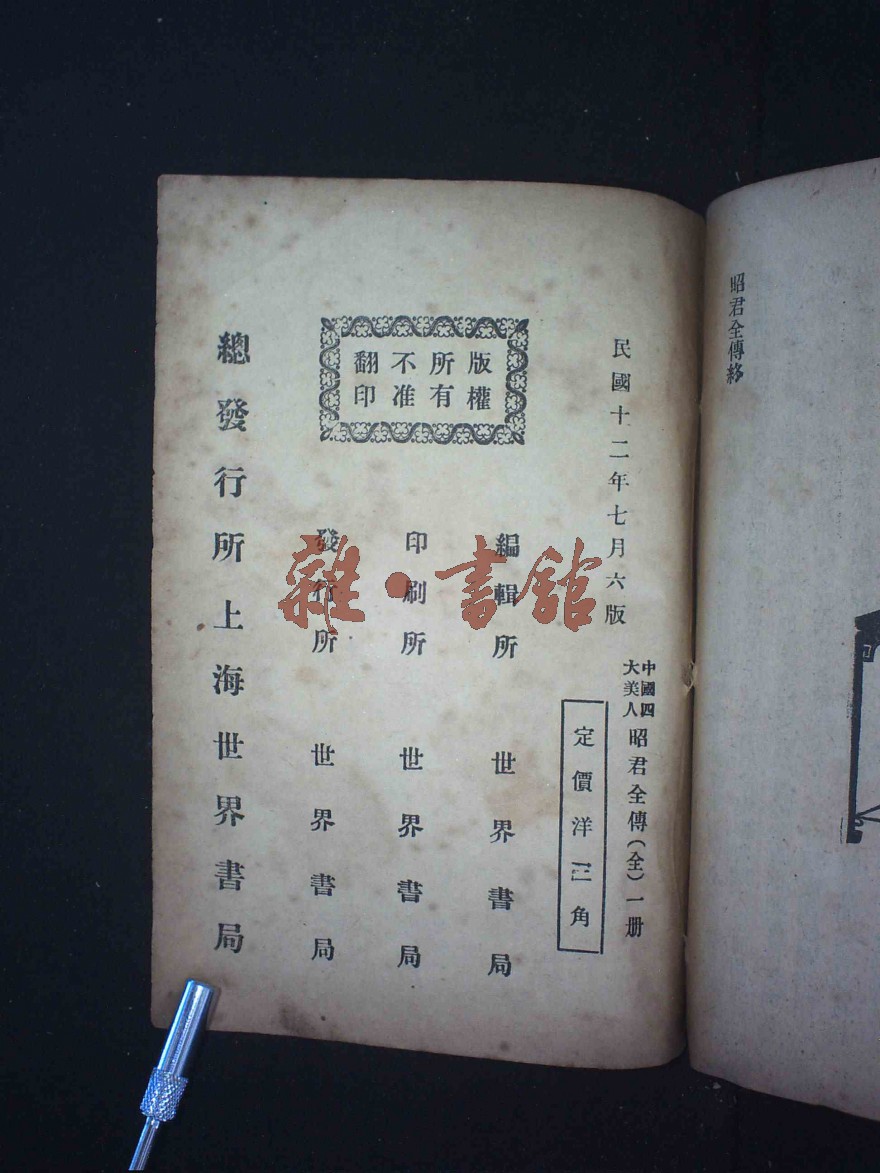 昭君全傳終
民國十二年七月六版
中國四大美人昭君全傳(全)一册
定價洋三角
版權
所有
不准
翻印
編輯所 世界書局
印刷所 世界書局
發行所 世界書局
總發行所上海世界書局
雜·書館